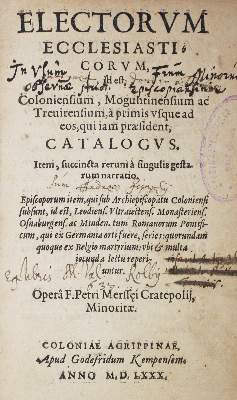 ELECTORVM
ECCLESIASTI
CORVM,
id est,
Coloniensium, Moguntinensium ac
Treuirensium, à primis vsque ad
eos, qui iam præsident,
CATALOGVS.
Item, succincta rerum à singulis gesta-
rum narratio.
Episcoporum item, qui sub Archiepiscopatu Coloniensi
subsunt, id est, Leodiens. Vltraiectens. Monasteriens.
Osnaburgens. ac Minden. tum Romanorum Pontifi-
cum, qui ex Germania orti fuere, series: quorundam
quoque ex Belgio martyrium: vbi & multa
iucunda lectu reperi-
untur.
Operâ F. Petri Merssæi Cratepolij,
Minoritæ.
COLONIAE AGRIPPINAE,
Apud Godefridum Kempensem.
ANNO M. D. LXXX.